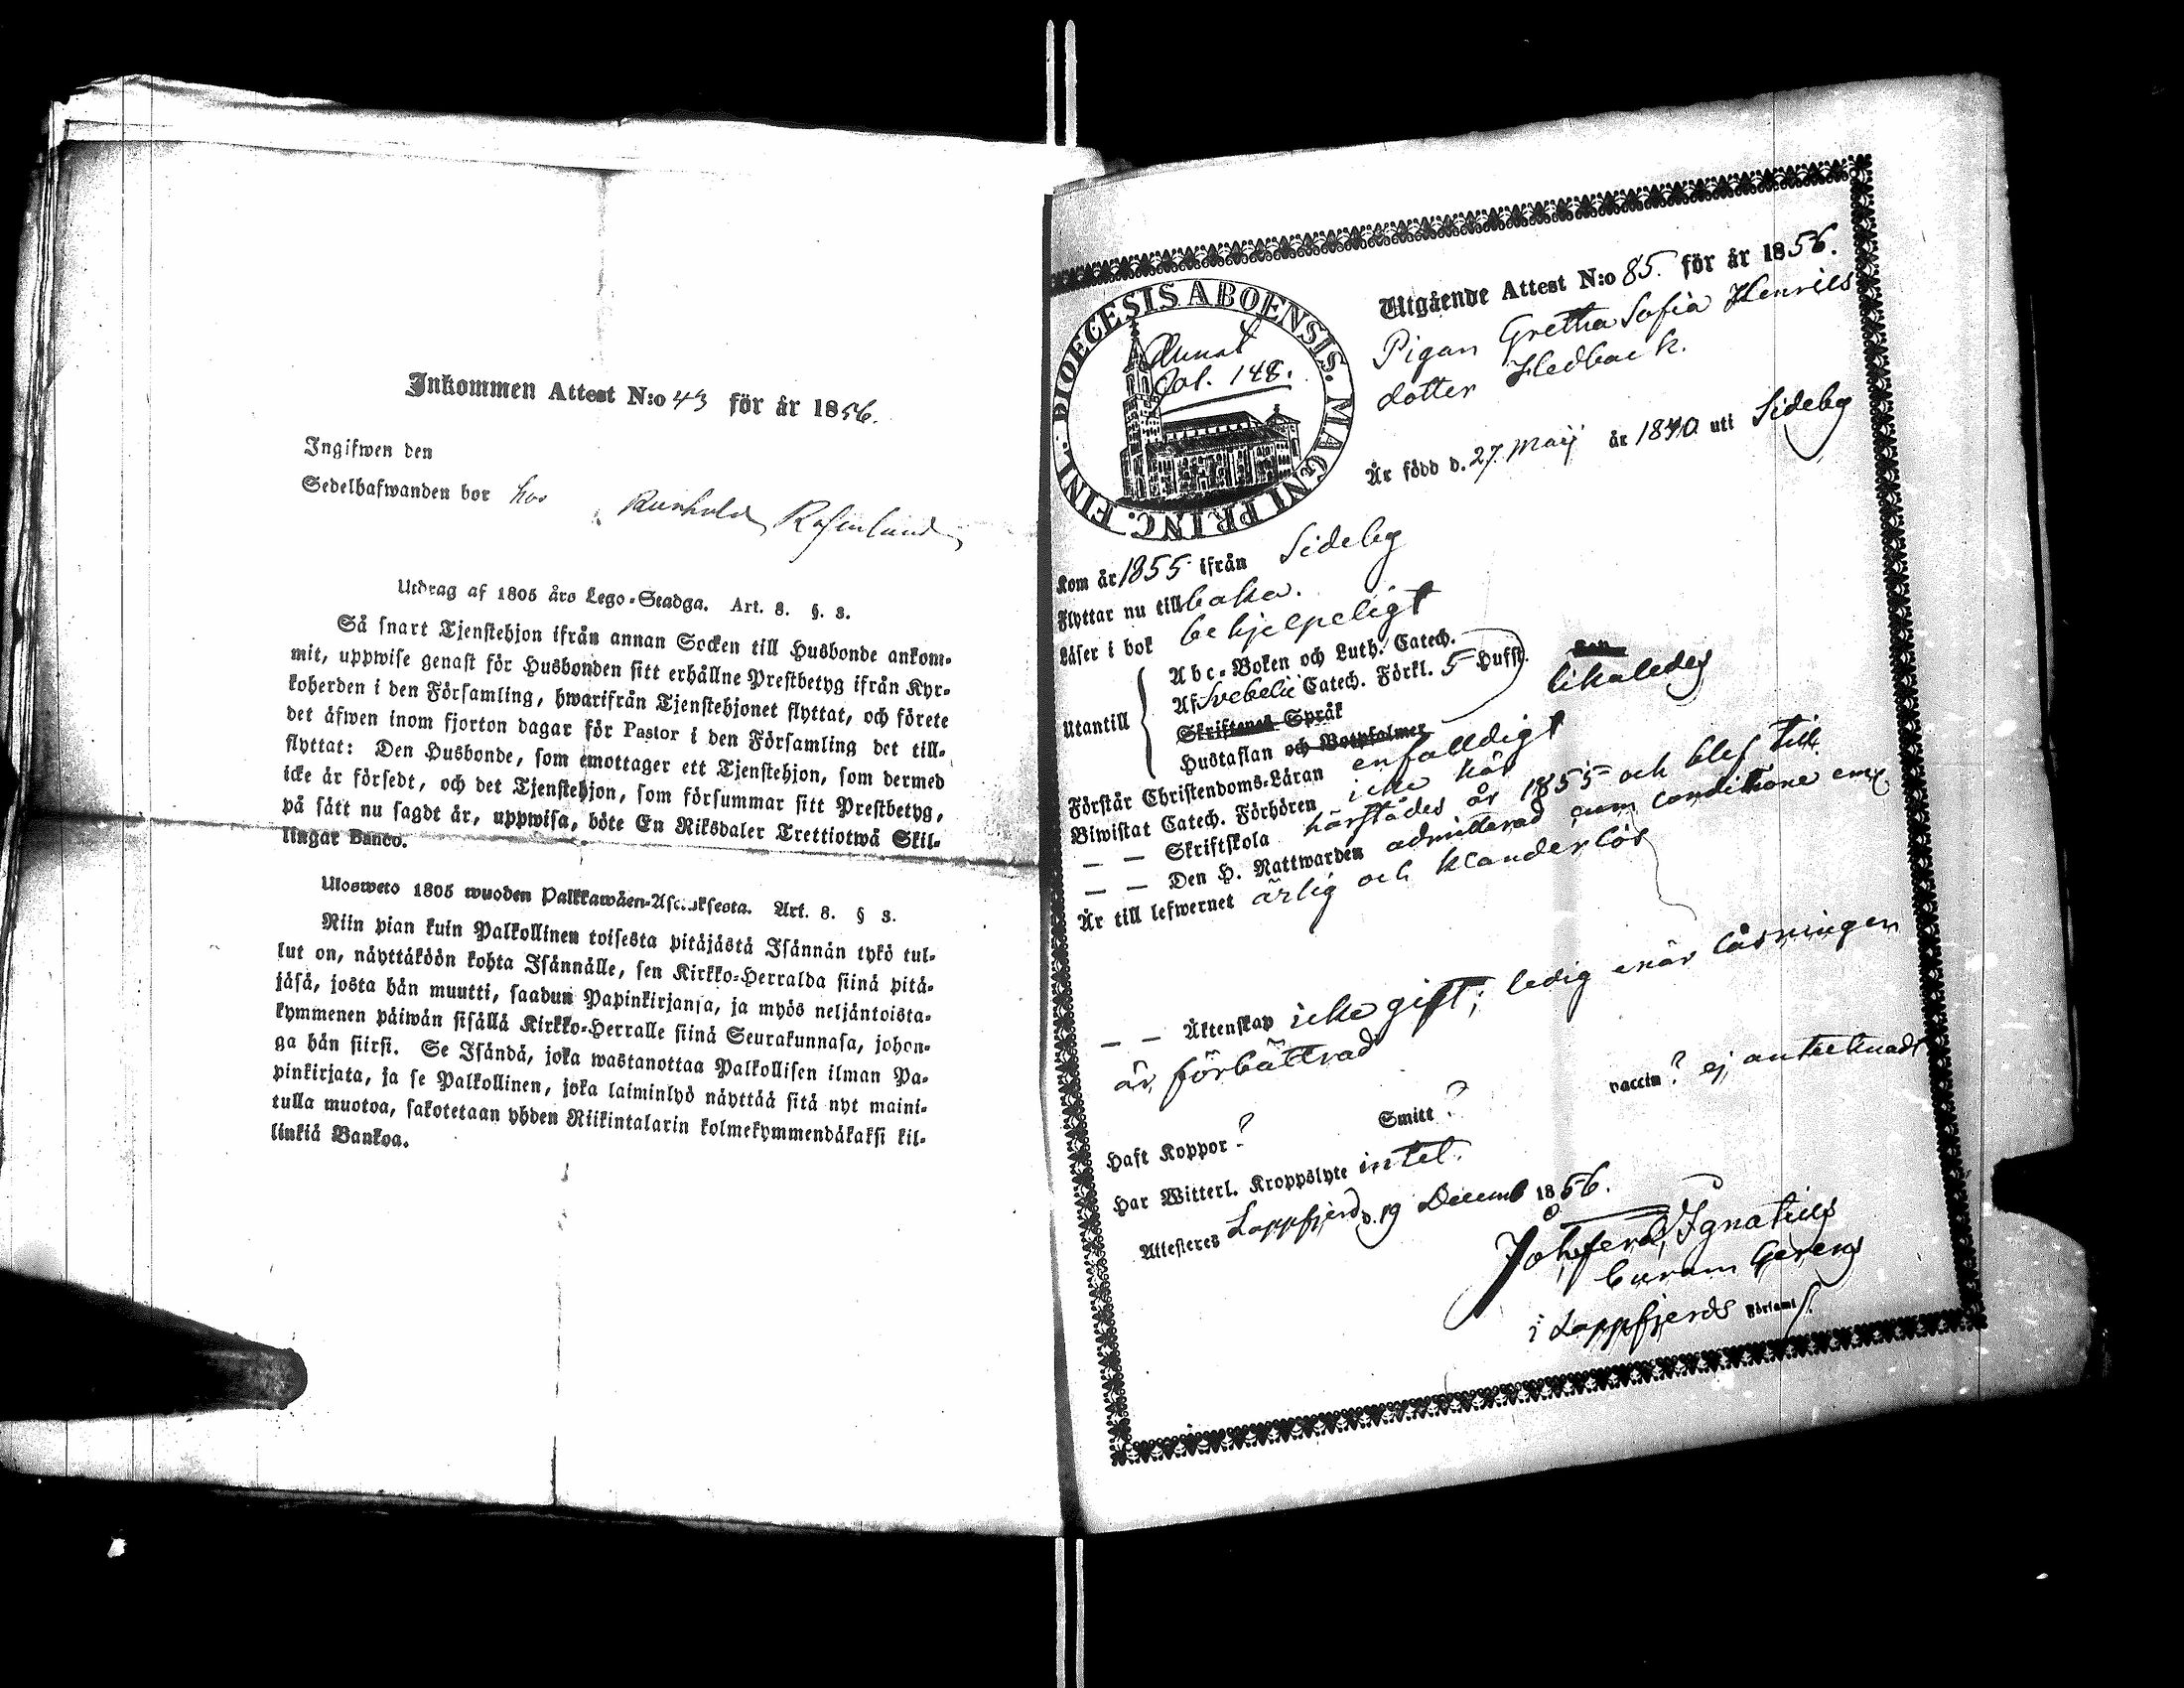 Inkommen Attest N:o 43 för år 1856.
Ingifwen den
Sedelhafwanden bor hos Reinhold Rosenlund
Utdrag af 1805 års Lego-Stadga. Art. 8. §. 3.
Så snart Tjenstehjon ifrån annan Socken till Husbonde ankom-
mit, uppwise genast för Husbonden sitt erhållne Prestbetyg ifrån Kyr-
koherden i den Församling, hwarifrån Tjenstehjonet flyttat, och förete
det äfwen inom fjorton dagar för Pastor i den Församling det till-
flyttat: Den Husbonde, som emottager ett Tjenstehjon, som dermed
icke är försedt, och det Tjenstehjon, som försummar sitt Prestbetyg,
på sätt nu sagdt är, uppwisa, böte En Riksdaler Trettiotwå Skil-
lingar Banco.
Ulosweto 1805 wuoden Palkkawäen-Asetuksesta. Art. 8. § 3.
Niin pian kuin Palkollinen toisesta pitäjästä Isännän tykö tul-
lut on, näyttäköön kohta Isännälle, sen Kirkko-Herralda siinä pitä-
jäsä, josta hän muutti, saadun Papinkirjansa, ja myös neljäntoista-
kymmenen päiwän sisällä Kirkko-Herralle siinä Seurakunnasa, johon-
ga hän siirsi. Se Isändä, joka wastanottaa Palkollisen ilman Pa-
pinkirjata, ja se Palkollinen, joka laiminlyö näyttää sitä nyt maini-
tulla muotoa, sakotetaan yhden Riikintalarin kolmekymmendäkaksi kil-
linkiä Bankoa.
DIOECESIS ABOENSIS. MAGNI PRINC. FINL.
Fol. 148.
Utgående Attest N:o 85. för år 1856.
Pigan Gretha Sofia Henrics
dotter Hedback.
Är född d. 27 Maij år 1840 uti Sideby
Kom år 1855 ifrån Sideby
Flyttar nu tillbaka.
Läser i bok behjelpeligt
Utantill
Abc-Boken och Luth. Catech.
Af Svebelii Catech. Förkl. 5 Hufst. likaledes
Skriftenes Språk
Hustaflan och Botpsalmer
Förstår Christendoms-Läran enfalldigt
Biwistat Catech. Förhören icke här
— — Skriftskola härstädes år 1855 och blef till
— — Den H. Nattwarden admitterad cum conditione em.
Är till lefwernet ärlig och klanderlös
— — Äktenskap icke gift; ledig enär läsningen
är förbättrad
Haft Koppor? Smitt? vaccin? ej antecknadt
Har Witterl. Kroppslyte intet.
Attesteres Lappfjerd d. 19 Decemb 1856.
Joh. Ferd. Ignatius
Curam Gerens
i Lappfjerds Församl.